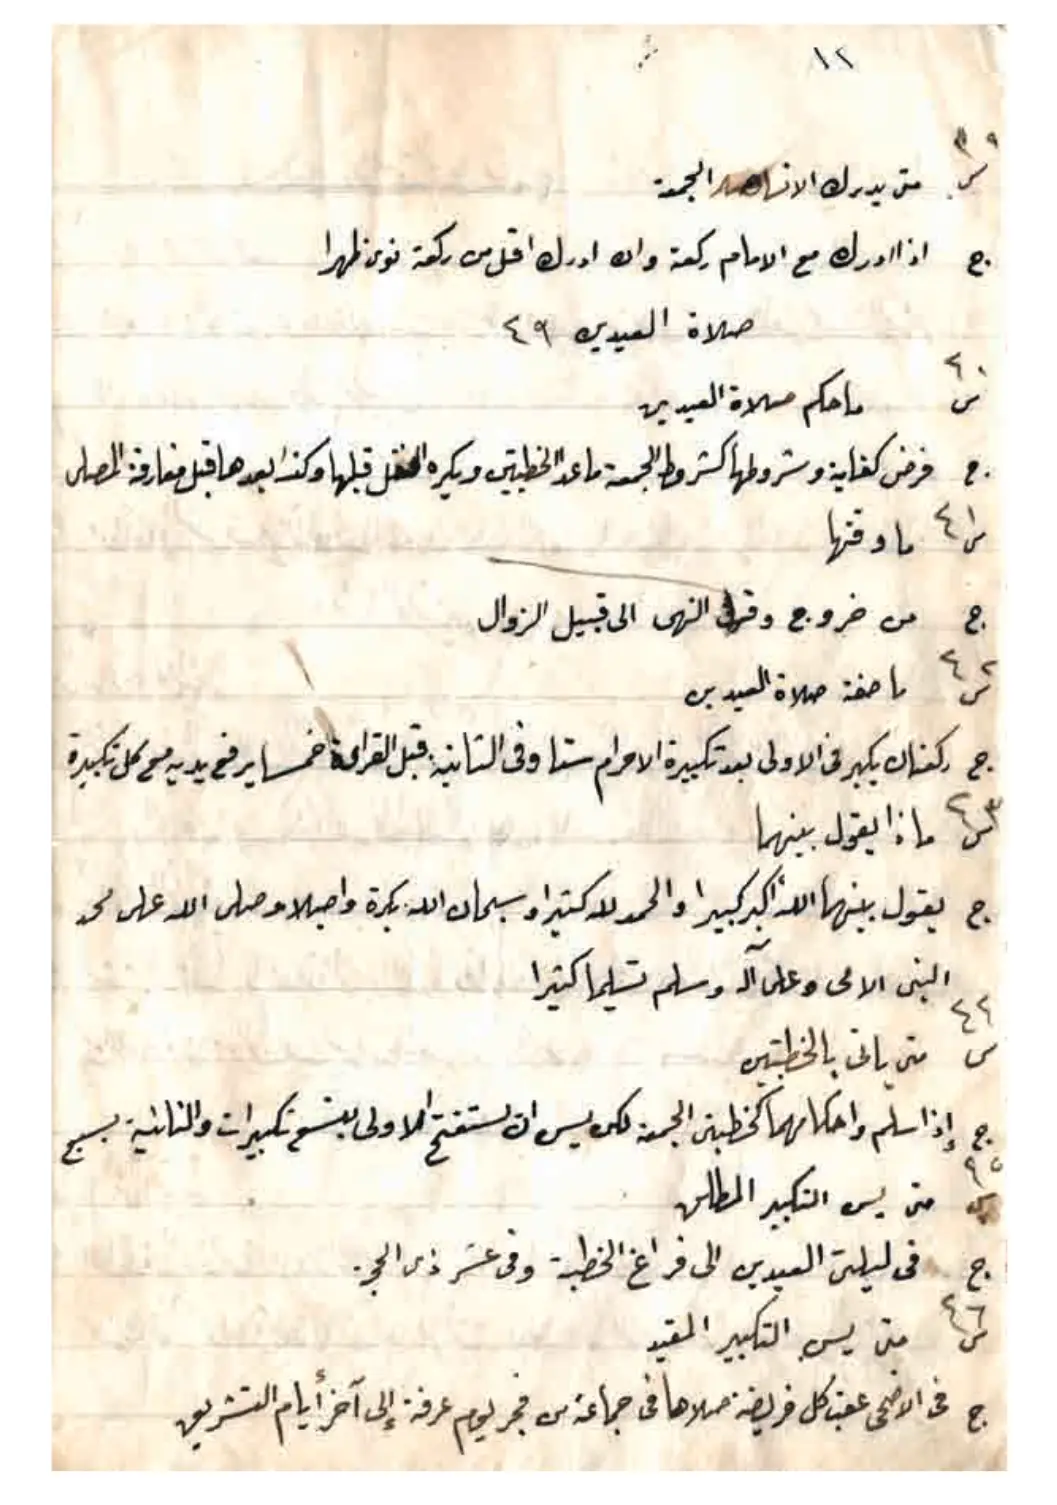 ١٢
س٣٩ متى يدرك الانسان الجمعة
ج اذا ادرك مع الامام ركعة وان ادرك اقل من ركعة نوى ظهرا
صلاة العيدين ٤٩
س٤٠ ما حكم صلاة العيدين
ج فرض كفاية وشروطها كشروط الجمعة ما عدا الخطبتين ويكره النفل قبلها وكذا بعدها قبل مفارقة المصلى
س٤١ ما وقتها
ج من خروج وقت النهى الى قبيل الزوال
س٤٢ ما صفة صلاة العيدين
ج ركعتان يكبر فى الاولى بعد تكبيرة الاحرام ستا وفى الثانية قبل القراءة خمسا يرفع يديه مع كل تكبيرة
س٤٣ ماذا يقول بينهما
ج يقول بينهما الله أكبر كبيرا والحمد لله كثيرا وسبحان الله بكرة واصيلا وصلى الله على محمد
النبى الامى وعلى آله وسلم تسليما كثيرا
س٤٤ متى يأتى بالخطبتين
ج إذا سلم واحكامهما كخطبتى الجمعة لكن يسن ان تستفتح الاولى بتسع تكبيرات والثانية بسبع
س٤٥ متى يسن التكبير المطلق
ج فى ليلتى العيدين الى فراغ الخطبة وفى عشر ذى الحجة
س٤٦ متى يسن التكبير المقيد
ج فى الاضحى عقب كل فريضة صلاها فى جماعة من فجر يوم عرفة إلى آخر أيام التشريق